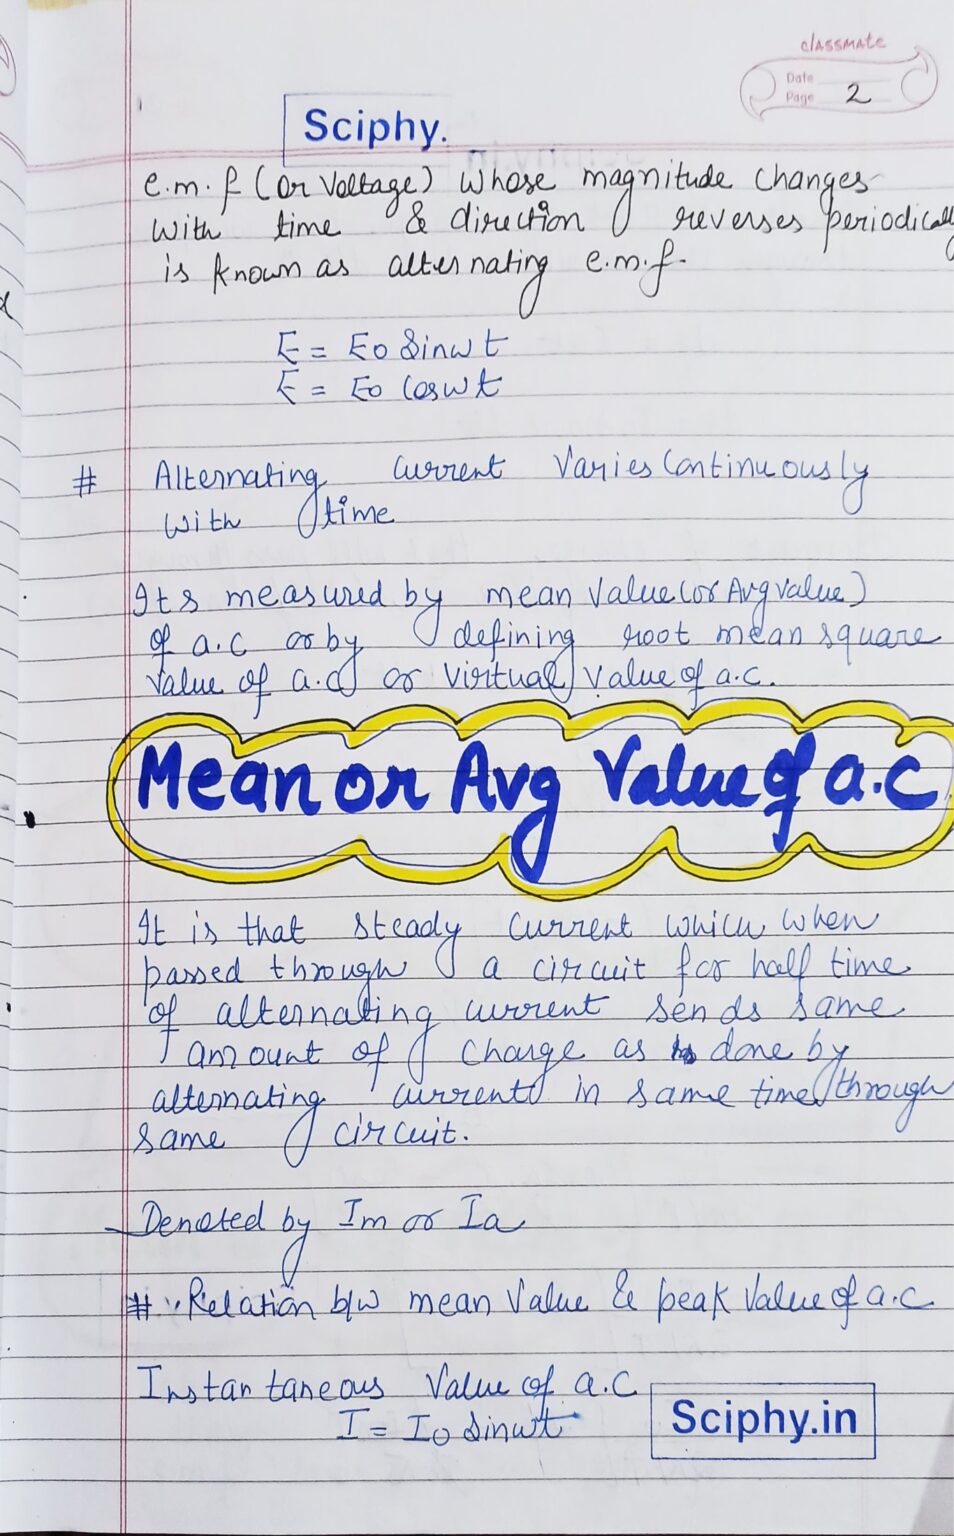 classmate
Date
Page 2
Sciphy.
e.m.f (or Voltage) whose magnitude changes
with time & direction reverses periodically
is known as alternating e.m.f.
E = E0 Sinwt
E = E0 Coswt
# Alternating current Varies Continuously
with time
Its measured by mean Value (or Avg value)
of a.c or by defining root mean square
Value of a.c or virtual value of a.c.
Mean or Avg Value of a.c
It is that steady current which when
passed through a circuit for half time
of alternating current sends same
amount of charge as is done by
alternating current in same time through
same circuit.
Denoted by Im or Ia
# Relation b/w mean Value & peak Value of a.c
Instantaneous Value of a.c
I = I0 Sinwt
Sciphy.in